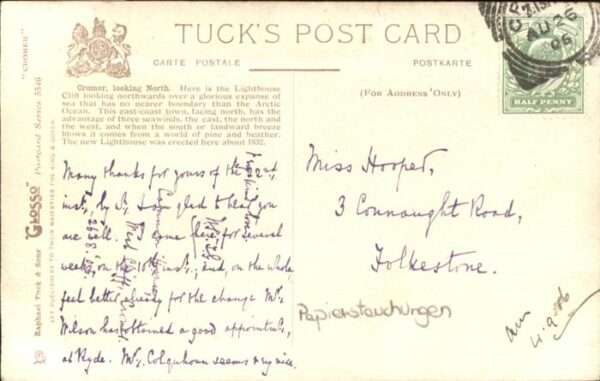 TUCK'S POST CARD
CARTE POSTALE
POSTKARTE
(FOR ADDRESS ONLY)
"CROMER"
"GLOSSO" Postcard Series 5546
Raphael Tuck & Sons
ART PUBLISHERS TO THEIR MAJESTIES THE KING & QUEEN
Cromer, looking North. Here is the Lighthouse
Cliff looking northwards over a glorious expanse of
sea that has no nearer boundary than the Arctic
Ocean. This east-coast town, facing north, has the
advantage of three seawinds, the east, the north and
the west, and when the south or landward breeze
blows it comes from a world of pine and heather.
The new Lighthouse was erected here about 1832.
AU 26
06
HALF PENNY
Many thanks for yours of the 22nd
inst, I am glad to hear you
are well. I came here for several
weeks, on the 10th inst; and, on the whole
feel better already for the change Mr.
has obtained a good appointmt,
at Ryde. Mr. Colquhoun seems very nice.
26.8.
Miss Hooper,
3 Connaught Road,
Folkestone.
Papierstauchungen